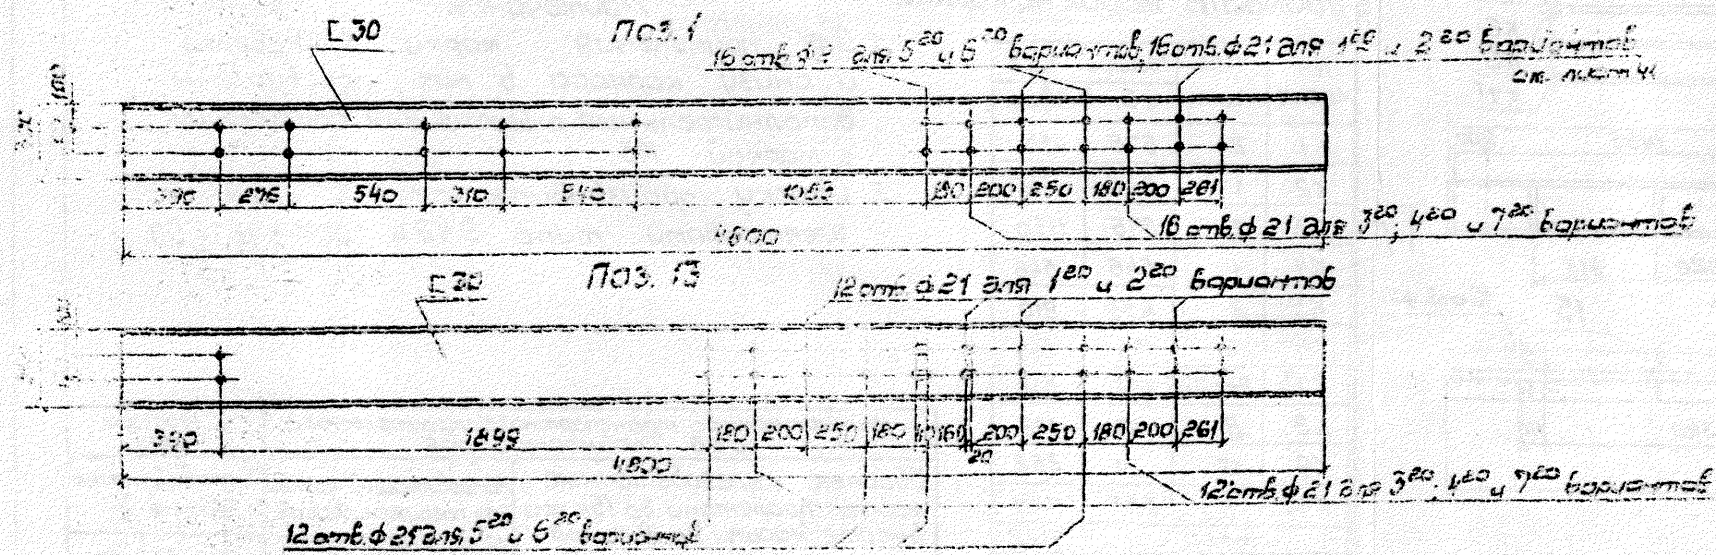 [ 30
Поз. 1
16 отв. ф для 5го и 6го вариантов, 16 отв. ф 21 для 1го и 2го вариантов
см. лист 41
100
390 276 540 310 540 1053 180 200 250 180 200 261
16 отв. ф 21 для 3го, 4го и 7го вариантов
4800
[ 30
Поз. 13
12 отв. ф 21 для 1го и 2го вариантов
390 1899 180 200 250 180 160 200 250 180 200 261
20
4800
12 отв. ф 21 для 3го, 4го и 7го вариантов
12 отв. ф 21 для 5го и 6го вариантов